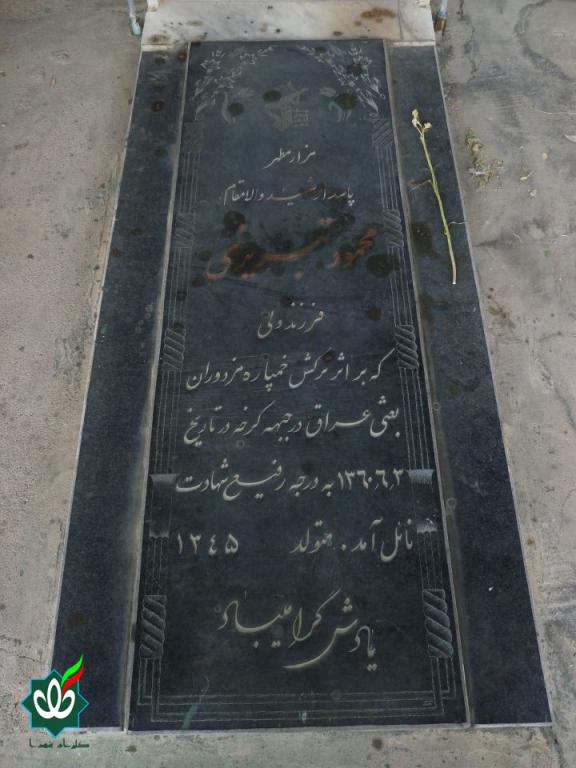 مزار مطهر
پاسدار شهید والامقام
محمود تبریزی
فرزند ولی
که بر اثر ترکش خمپاره مزدوران
بعثی عراق در جبهه کرخه در تاریخ
۱۳۶۰٫۶٫۲ به درجه رفیع شهادت
نائل آمد. متولد ۱۳۴۵
یادش گرامیباد
گلزار شهدا